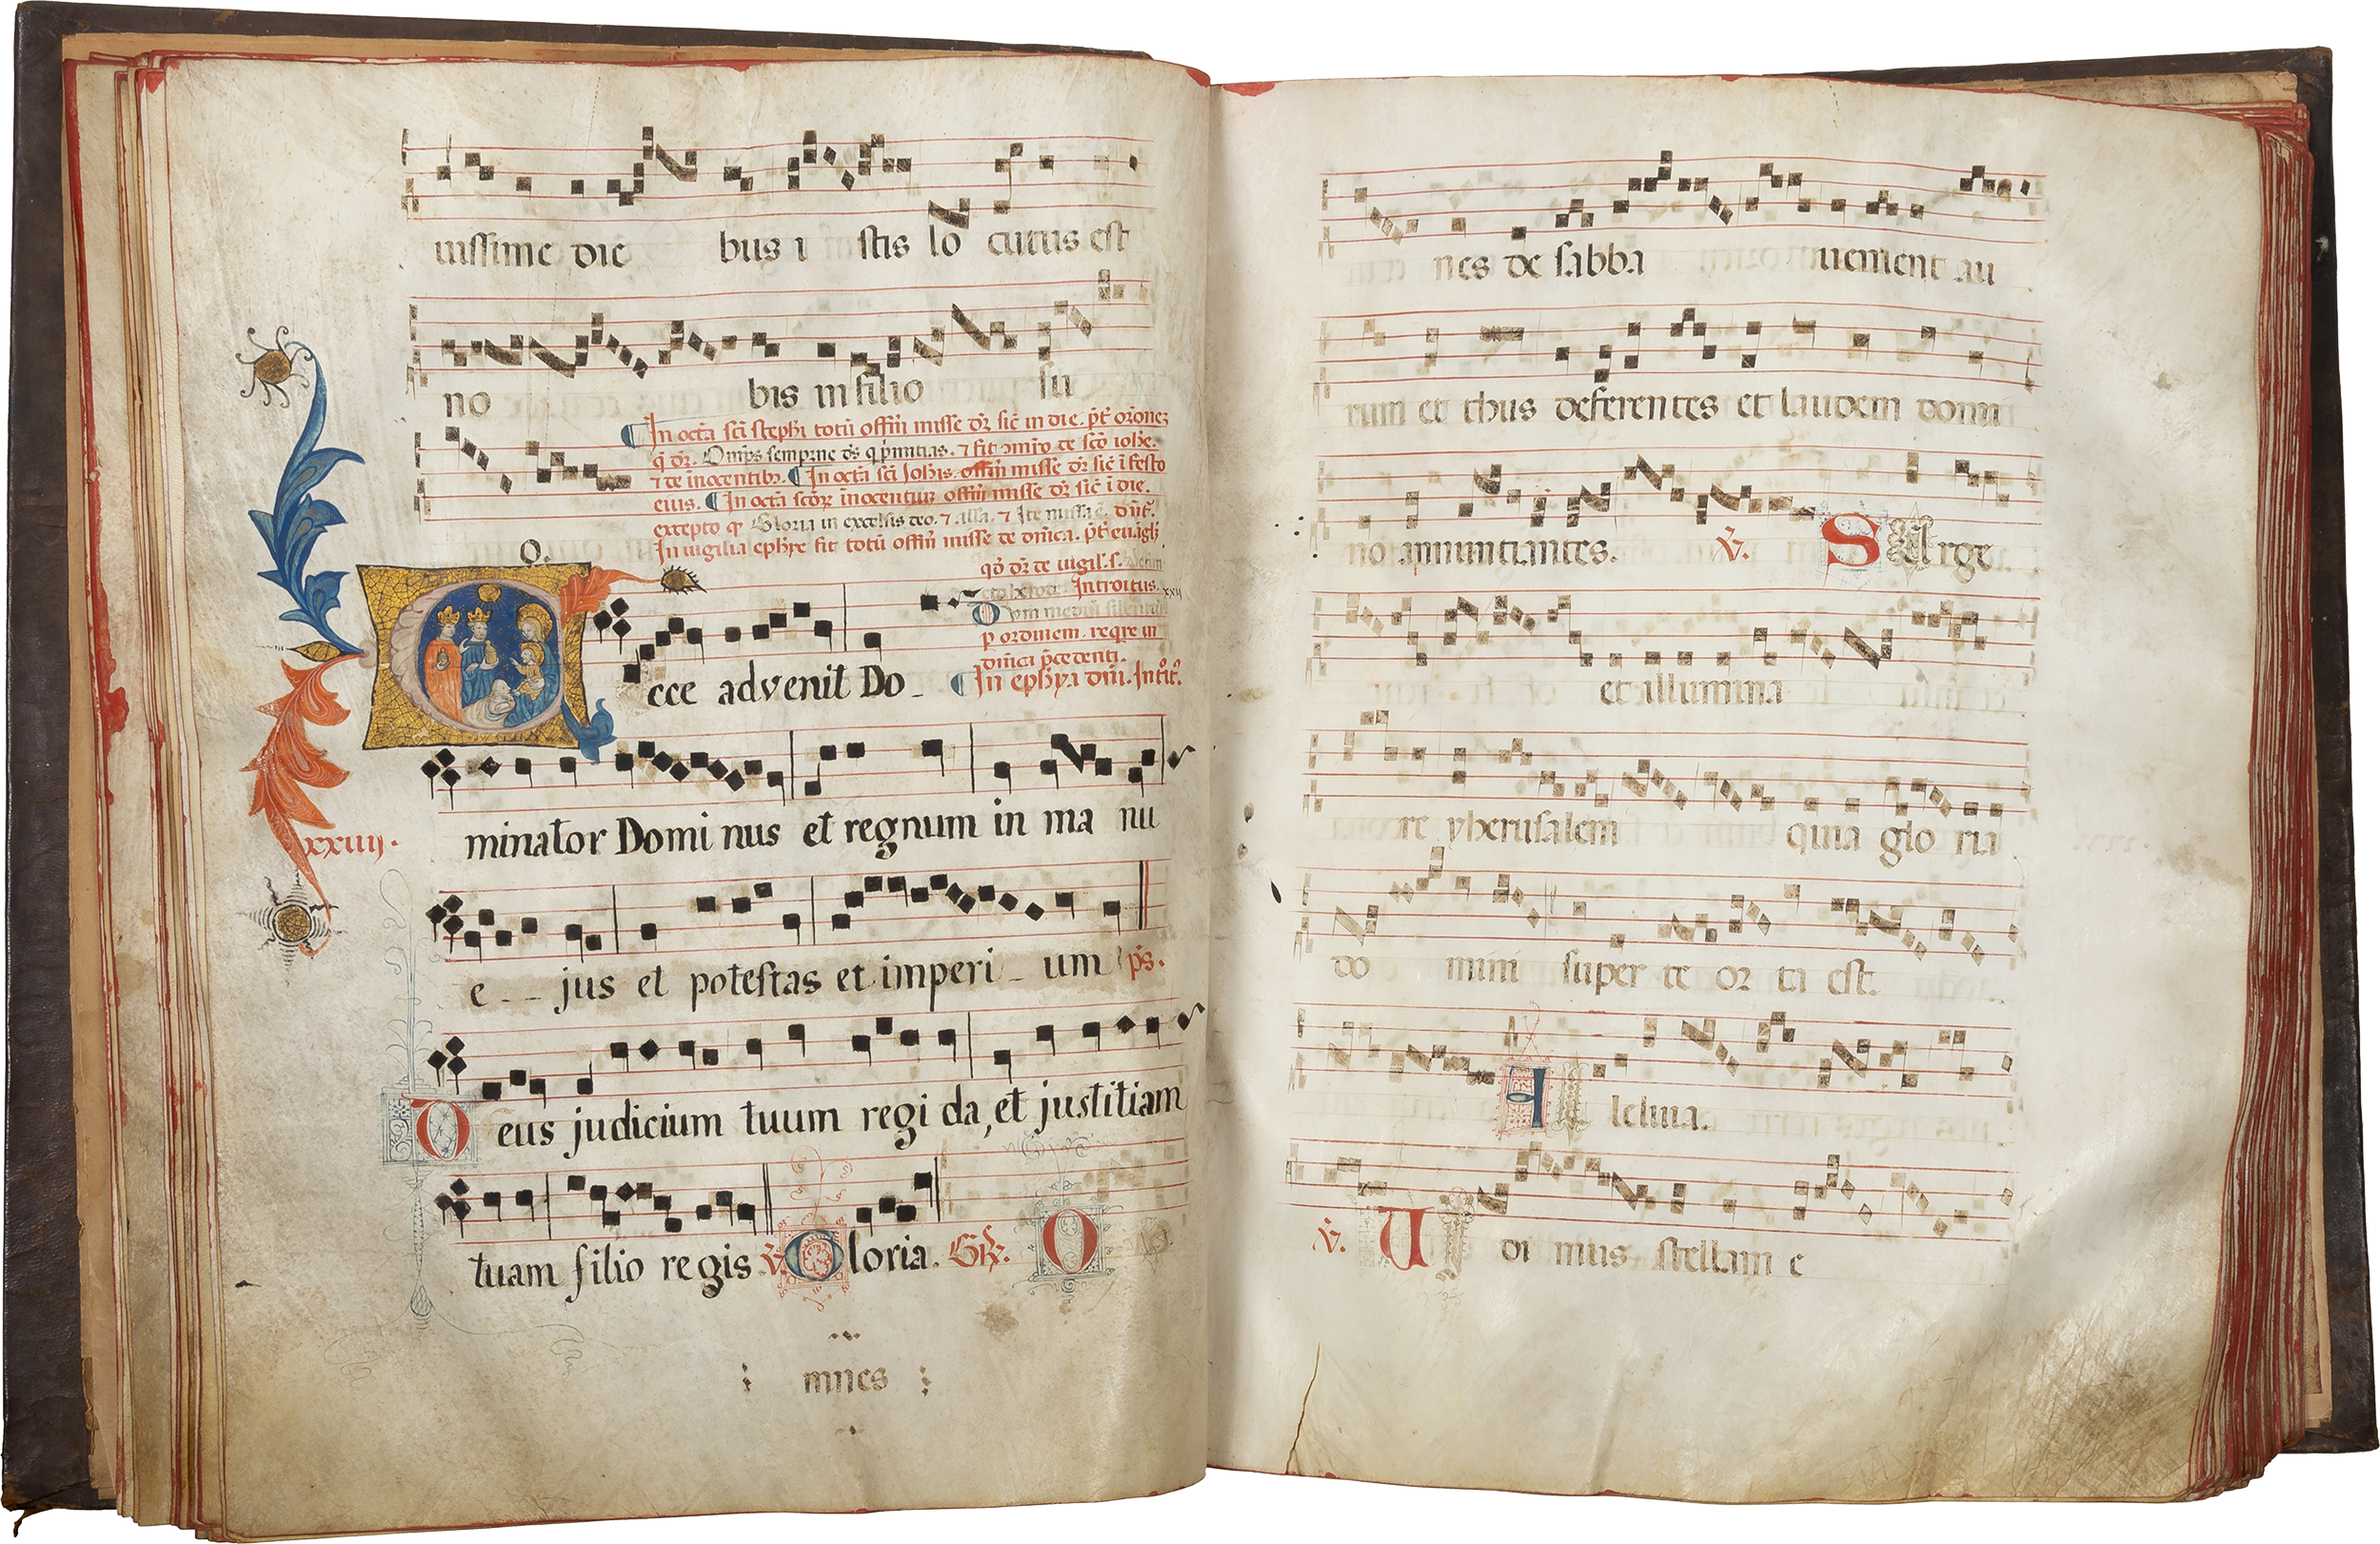 uissime die bus i stis lo cutus est
no bis in filio su
¶ In octã sci stephi totũ offim misse dr̃ sic in die. p̃t or̃ones
q̃ dr̃. Omps sempitne ds q p̃mitias. ⁊ fit ↄmõ de scõ ioh̃e.
⁊ de inocentib3. ¶ In octã sci Johis offim misse dr̃ sic ĩ festo
eius. ¶ In octã scõr̃ ĩnocentum offim misse dr̃ sic ĩ die.
excepto q Gloria in excelsis deo. ⁊ alla. ⁊ Ite missa ẽ. d
In uigilia ephye fit totũ offim misse de dnica. p̃t euãgl
O.
qõ dr̃ de uigil. s.
Introitus. xxij
Dum mediũ silentiũ
ecce advenit Do-
p ordinem. reqre in
dnica p̃cedenti.
¶ In ephya dni. Introit.
minator Domi nus et regnum in ma nu
xxiiij.
e - - jus et potestas et imperi - um ps.
Deus judicium tuum regi da, et justitiam
tuam filio regis ℣. Gloria. Gr. O
mnes
nes de sabba uenient au
rum et thus deferentes et laudem domi
no annuntiantes. ℣. SUrge
et illumina
re yherusalem quia glo ria
do mini super te or ta est.
Alleluia.
℣. UI di mus stellam e